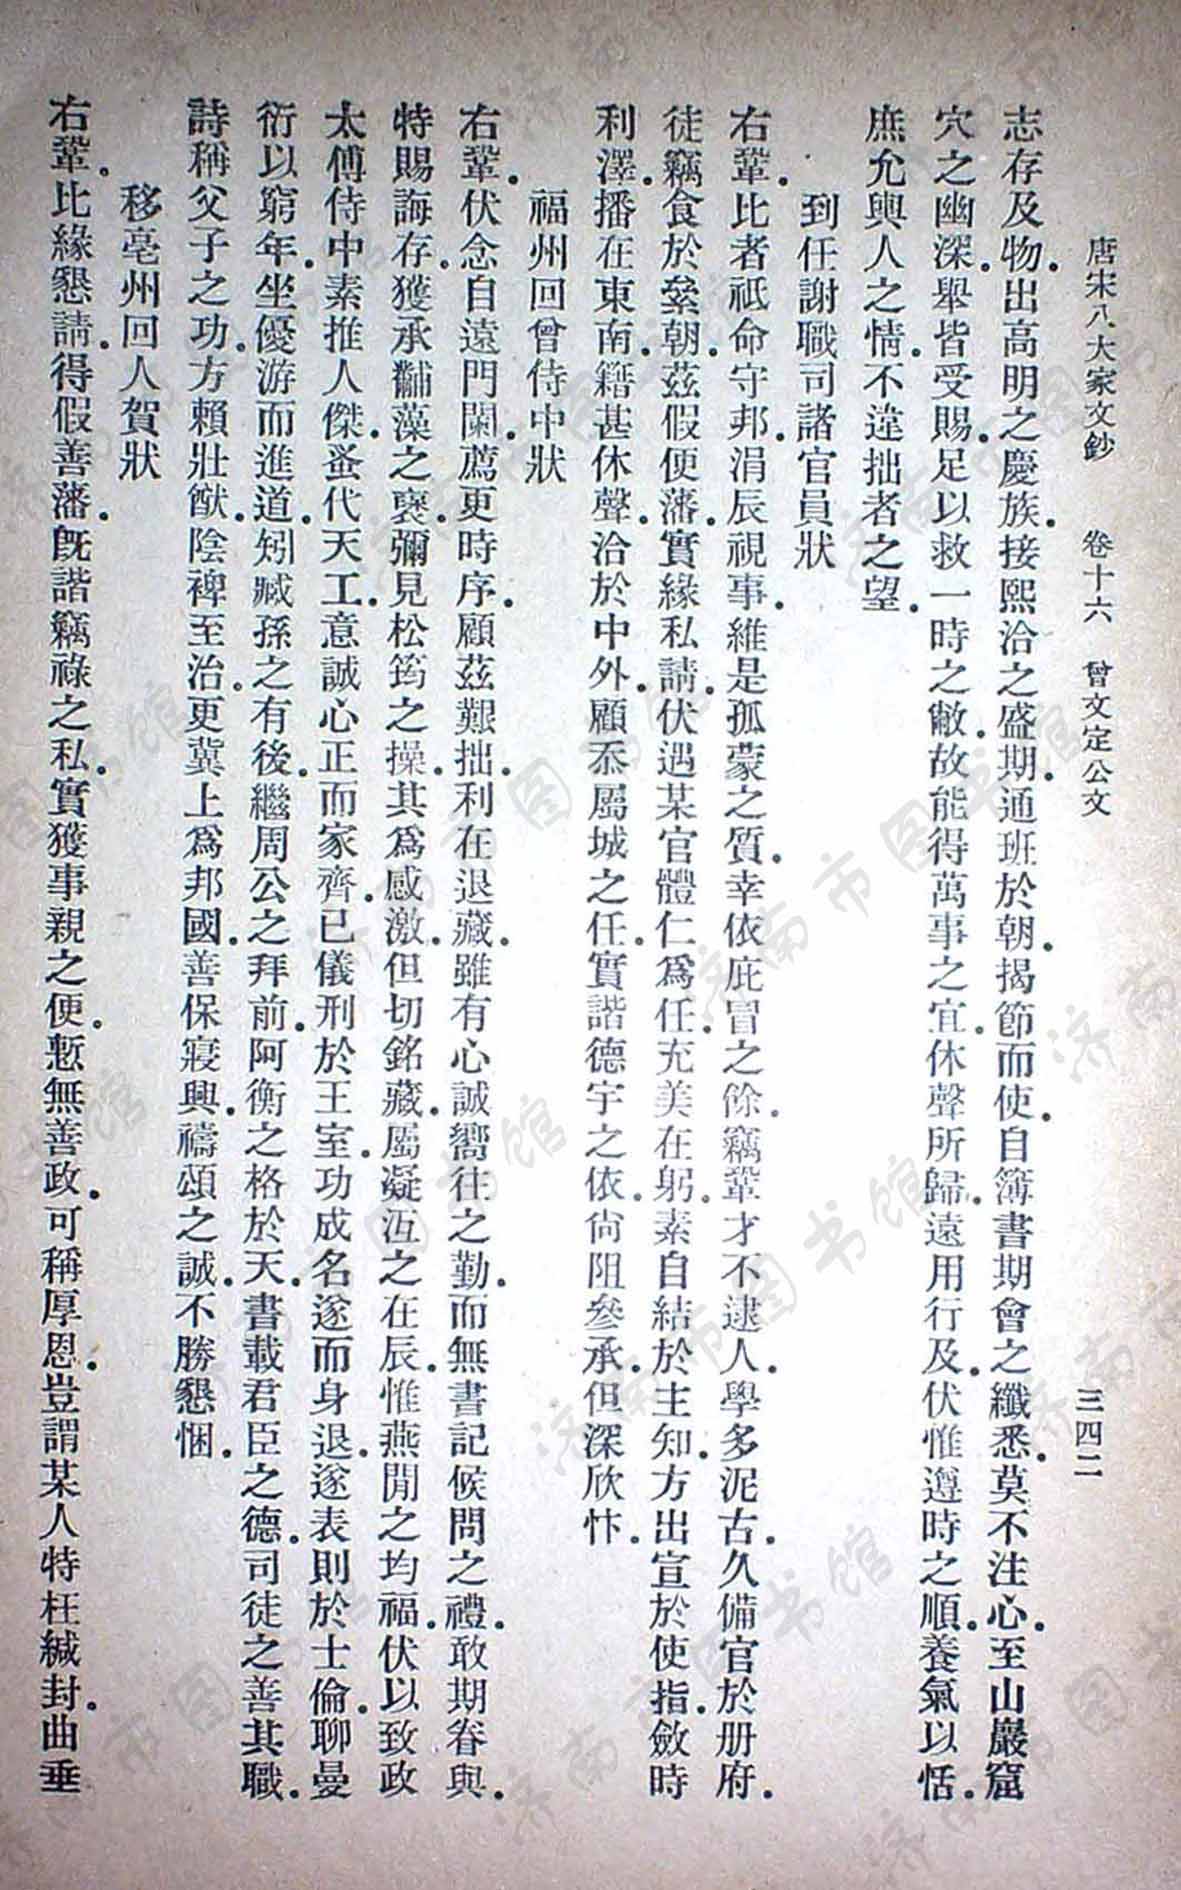 唐宋八大家文鈔　卷十六　曾文定公文　三四二
志存及物。出高明之慶族。接熙洽之盛期。通班於朝。揭節而使。自簿書期會之纖悉。莫不注心。至山巖窟
穴之幽深。舉皆受賜。足以救一時之敝。故能得萬事之宜。休聲所歸。遠用行及。伏惟遵時之順。養氣以恬。
庶允輿人之情。不違拙者之望。
到任謝職司諸官員狀
右鞏。比者祇命守邦。涓辰視事。維是孤蒙之質。幸依庇冒之餘。竊鞏才不逮人。學多泥古。久備官於册府。
徒竊食於絫朝。茲假便藩。實緣私請。伏遇某官體仁爲任。充美在躬。素自結於主知。方出宣於使指。斂時
利澤。播在東南。籍甚休聲。洽於中外。顧忝屬城之任。實諧德宇之依。尙阻參承。但深欣忭。
福州回曾侍中狀
右鞏。伏念自遠門闌。薦更時序。顧茲艱拙。利在退藏。雖有心誠嚮往之勤。而無書記候問之禮。敢期眷與。
特賜誨存。獲承黼藻之襃。彌見松筠之操。其爲感激。但切銘藏。屬凝沍之在辰。惟燕閒之均福。伏以致政
太傅侍中素推人傑。蚤代天工。意誠心正而家齊。已儀刑於王室。功成名遂而身退。遂表則於士倫。聊曼
衍以窮年。坐優游而進道。矧臧孫之有後。繼周公之拜前。阿衡之格於天。書載君臣之德。司徒之善其職。
詩稱父子之功。方賴壯猷。陰裨至治。更冀上爲邦國。善保寢興。禱頌之誠。不勝懇悃。
移亳州回人賀狀
右鞏。比緣懇請。得假善藩。旣諧竊祿之私。實獲事親之便。慙無善政。可稱厚恩。豈謂某人特枉緘封。曲垂